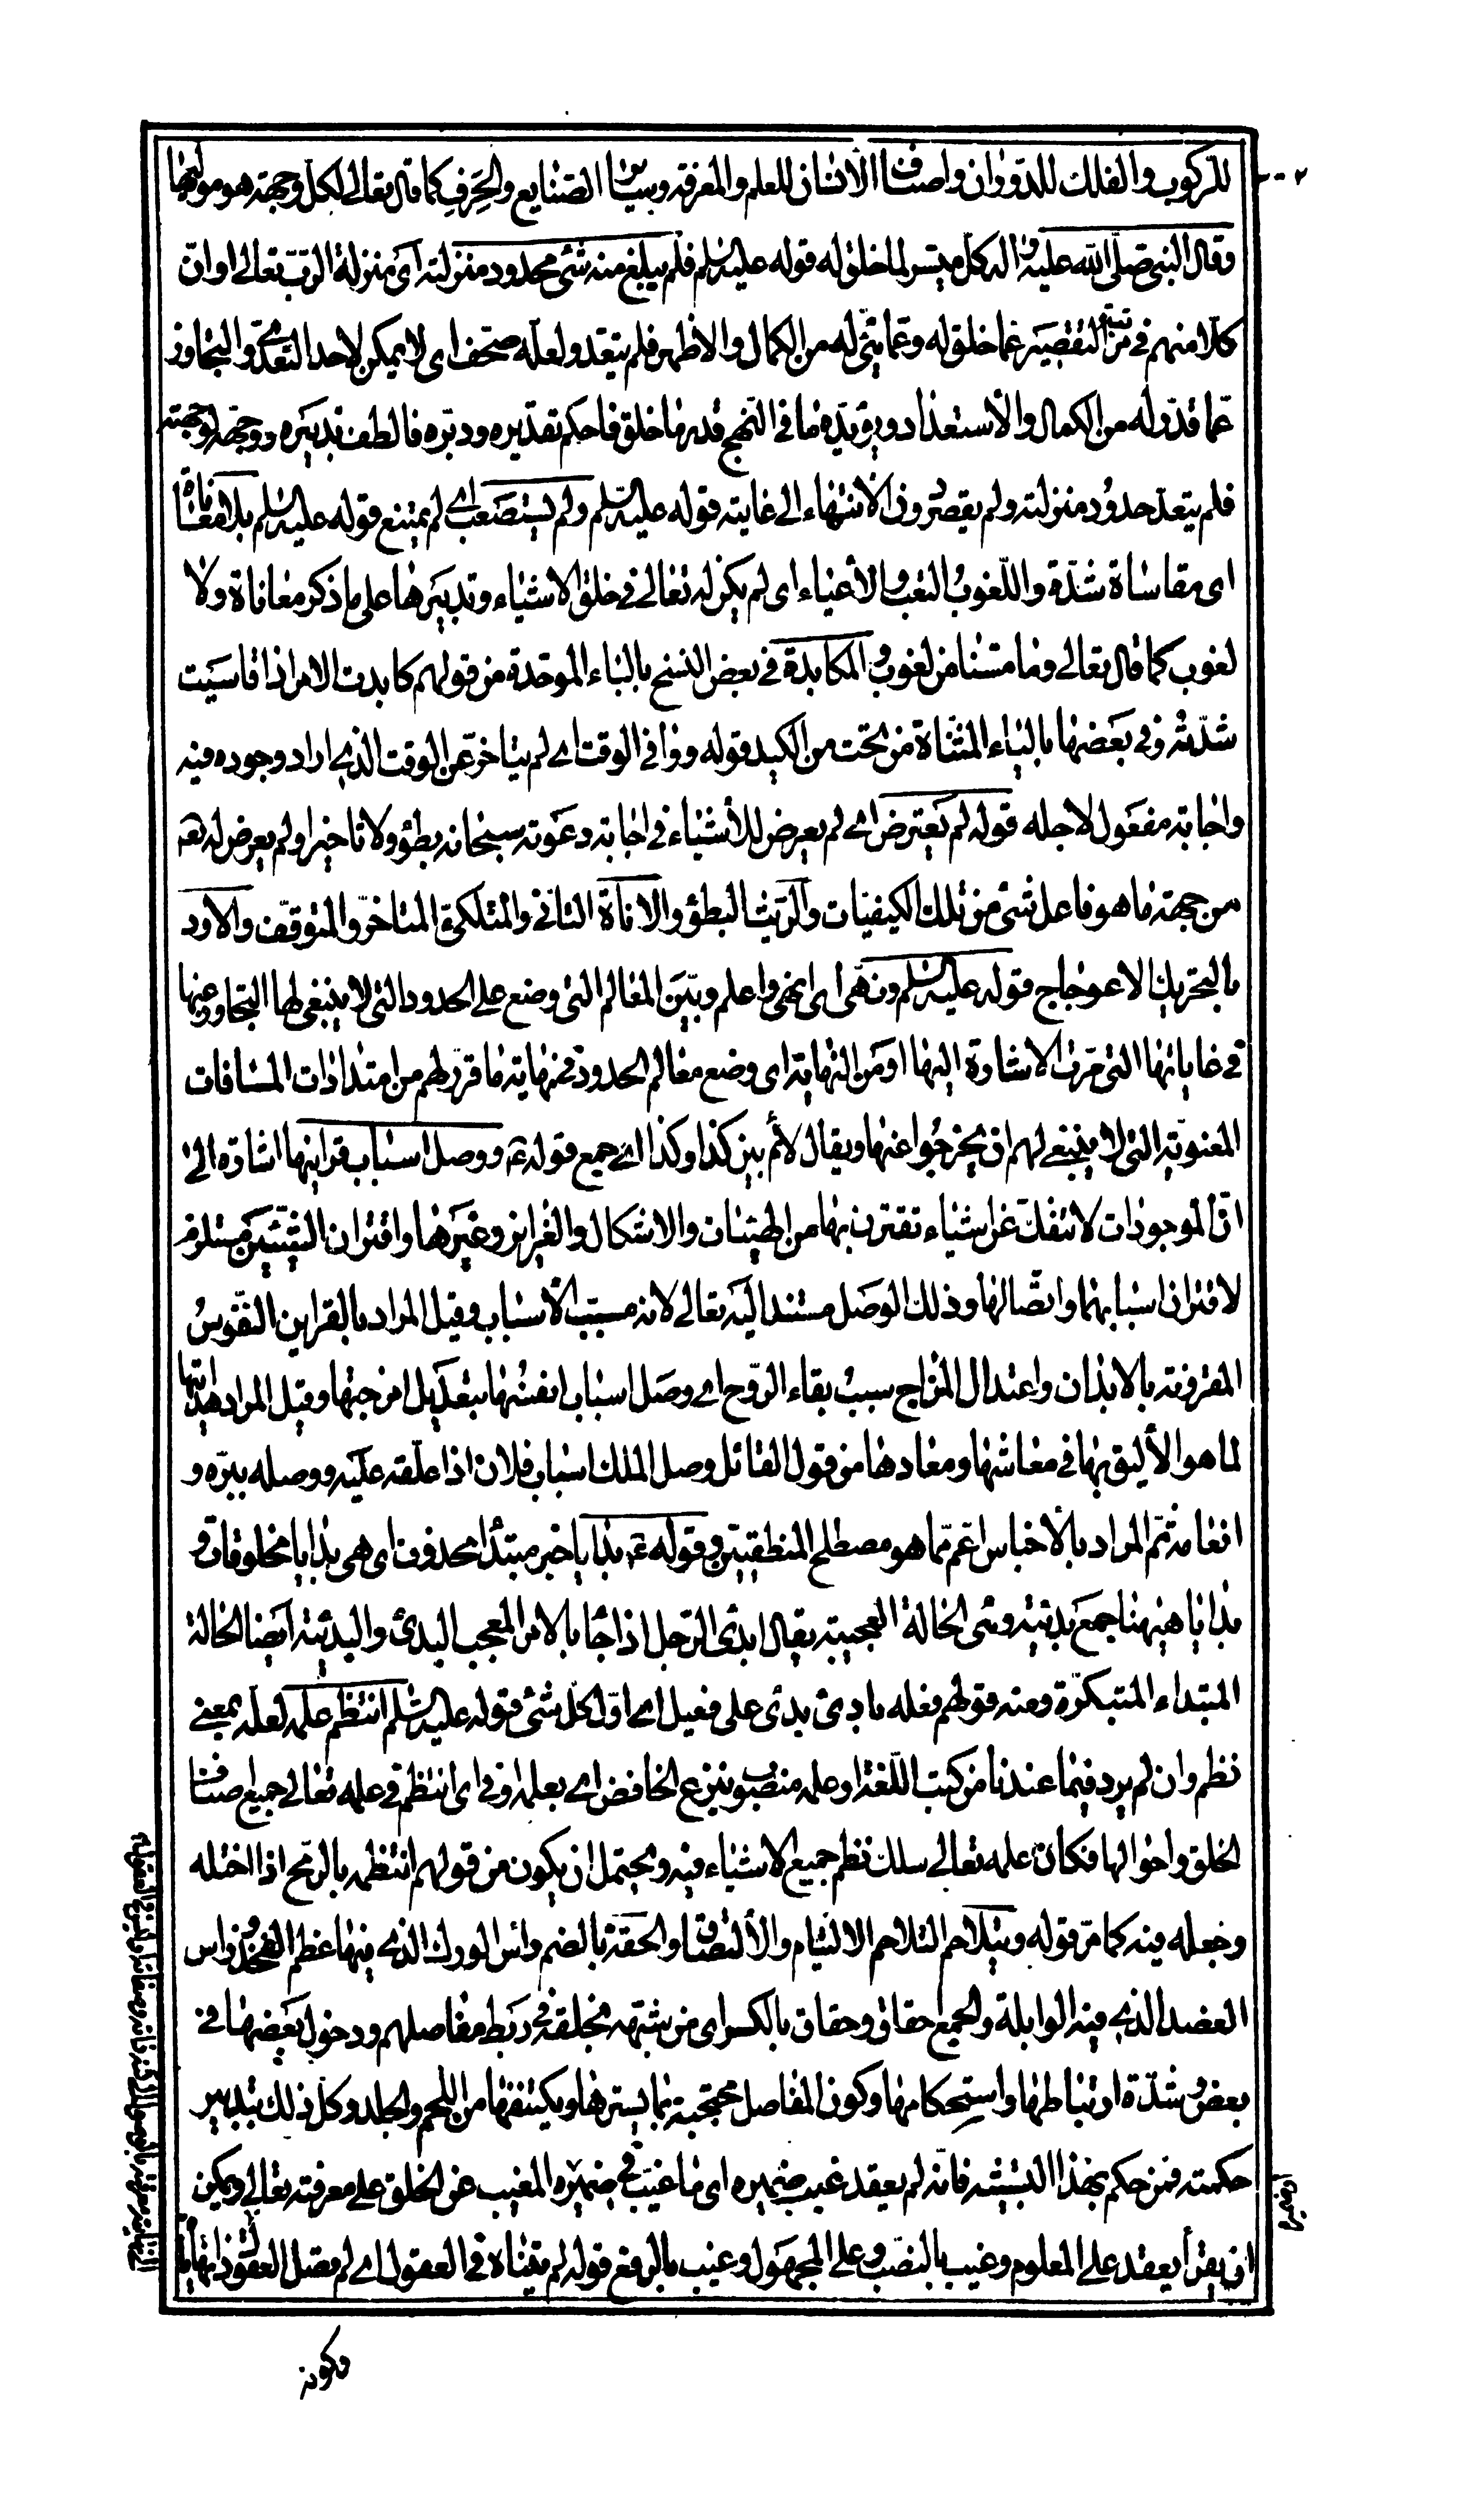 للركوب والفلك للدوران واصناف الانسان للعلم والمعرفة وساير الصنايع والحرف كما قال تعالى لكل وجهة هو موليها
وقال النبي صلى الله عليه واله كل ميسر لما خلق له قوله عليه السلم فلم يبلغ منه شئ محدود منزلته اى منزلة الرب تعالى او ان
كلا منهم في مرتبة التقصير عما خلق له وعما هيئ له من الكمال والاظهر فلم يتعد ولعله صحف اى لا يمكن لاحد التعدى والتجاوز
عما قدر له من الكمال والاستعداد ويؤيده ما في النهج قدر ما خلق فاحكم تقديره ودبره فالطف تدبيره ووجهه لوجهته
فلم يتعد حدود منزلته ولم يقصر دون الانتهاء الى غايته قوله عليه السلم ولم يستصعب اى لم يمتنع قوله عليه السلم بلا معاناة
اى مقاساة شدة واللغوب التعب والاعياء اى لم يكن له تعالى في خلق الاشياء وتدبيرها على ما ذكر معاناة ولا
لغوب كما قال تعالى وما مسنا من لغوب والمكابدة في بعض النسخ بالباء الموحدة من قولهم كابدت الامر اذا قاسيت
شدته وفي بعضها بالياء المثناة من تحت من الكيد قوله ووافى الوقت اى لم يتاخر عن الوقت الذي اراد وجوده فيه
واجابة مفعول لاجله قوله لم يعترض اى لم يعرض للاشياء في اجابة دعوته سبحانه بطؤ ولا تاخير او لم يعرض له تعه
من جهة ما هو فاعل شئ من تلك الكيفيات والريث البطؤ والاناة التاني والمتلكئ المتاخر والمتوقف والاود
بالتحريك الاعوجاج قوله عليه السلم ونهى اى انهى واعلم وبين المعالم التي وضع على الحدود التي لا ينبغي لها التجاوز عنها
في غاياتها التي مرت الاشارة اليها او من النهاية اى وضع معالم الحدود في نهاية ما قرر لهم من امتدادات المسافات
المعنوية التي لا ينبغي لهم ان يخرجوا عنها ويقال لأم بين كذا وكذا اى جمع قوله ع ووصل اسباب قراينها اشارة الى
ان الموجودات لا تنفك عن اشياء تقترن بها من الهيئات والاشكال والغرايز وغيرها واقتران الشيئين مستلزم
لاقتران اسبابهما واتصالها وذلك الوصل مستند اليه تعالى لانه مسبب الاسباب وقيل المراد بالقراين النفوس
المقرونة بالابدان واعتدال المزاج سبب بقاء الروح اى وصل اسباب انفسها بتعديل امزجتها وقيل المراد هدايتها
لما هو الأليق بها في معاشها ومعادها من قول القائل وصل الملك اسباب فلان اذا علقه عليه ووصله ببره و
انعامه ثم المراد بالاجناس اعم مما هو مصطلح المنطقيين وقوله ع بدايا خبر مبتدأ محذوف اى هى بدايا مخلوقات و
بدايا هيهنا جمع بديئة وهي الحالة العجيبة يقال ابدى الرجل اذا جاء بالامر المعجب البدئ والبديئة ايضا الحالة
المبتداء المبتكرة ومنه قولهم فعله بادئ بدئ على فعيل اى اول كل شئ قوله عليه السلم انتظم علمه لعله بمعنى
نظم وان لم يرد فيما عندنا من كتب اللغة او علمه منصوب بنزع الخافض اى بعلمه او في اى انتظم في علمه تعالى جميع اصناف
الخلق واحوالها فكان علمه تعالى سلك نظم جميع الاشياء فيه ويحتمل ان يكون من قولهم انتظمه بالرمح اذا اختله
وجعله فيه كما مر قوله وبتلاحم التلاحم الالتيام والالتصاق والحقة بالضم رأس الورك الذي فيها عظم الفخذ وراس
العضد الذي فيه الوابلة والجمع احقاق وحقاق بالكسر اى من شبهه بخلقه في ربط مفاصلهم ودخول بعضها في
بعض وشدة ارتباطها واستحكامها وكون المفاصل محتجبة بما يسترها ويكتنفها من اللحم والجلد وكل ذلك بتدبير
حكمته فمن حكم بهذا التشبيه فانه لم يعقد غيب ضميره اى ما غيب في ضميره المغيب عن الخلق على معرفته تعالى ويمكن
ان يقرأ يعقد على المعلوم وغيب بالنصب وعلى المجهول وغيب بالرفع قوله لم يتناه في العقول اى لم تصل العقول